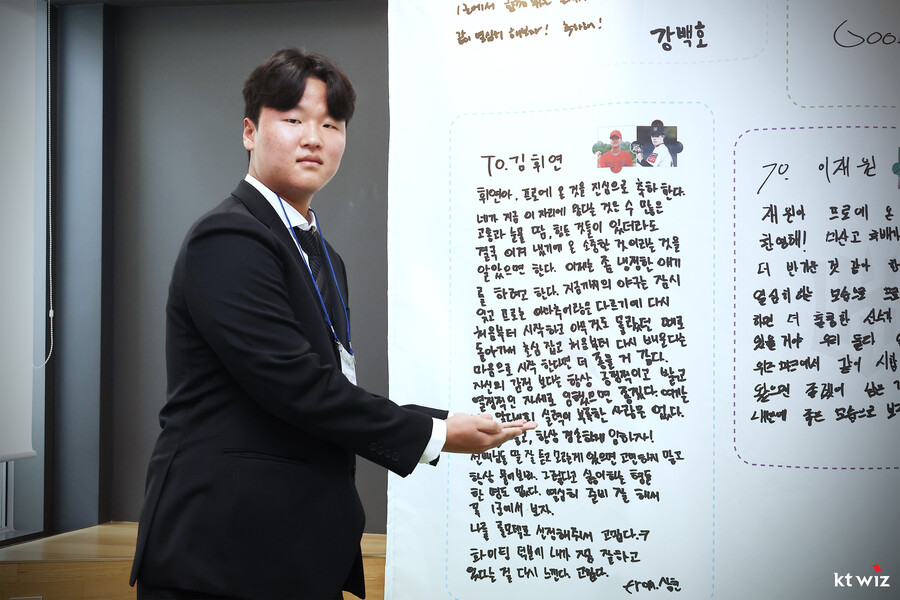 1군에서 함께
같이 열심히 해보자! 축하해!
강백호
Goo
TO.김휘연
휘연아, 프로에 온 것을 진심으로 축하 한다.
네가 지금 이 자리에 있다는 것은 수 많은
고통과 눈물 땀, 힘든 것들이 있더라도
결국 이겨 냈기에 온 소중한 것이라는 것을
알았으면 한다. 이제는 좀 냉정한 얘기
를 하려고 한다. 지금까지의 야구는 잠시
잊고 프로는 아마추어랑은 다르기에 다시
처음부터 시작하고 아무것도 몰랐던 때로
돌아가서 초심 잡고 처음부터 다시 배운다는
마음으로 시작 한다면 더 좋을 거 같다.
자신의 감정 보다는 항상 긍정적이고 밝고
열정적인 자세로 임했으면 좋겠다. 여기는
실력이 부족한 사람은 없다.
항상 겸손하게 야구하자!
선배님들 말 잘 듣고 모르는게 있으면 고민하지 말고
항상 물어봐라. 그렇다고 싫어하는 형들
한 명도 없다. 열심히 준비 잘 해서
꼭 1군에서 보자.
나를 롤모델로 선정해줘서 고맙다.ㅋ
화이팅 덕분에 내가 잘하고
있다는 걸 다시 느낀다. 고맙다.
from.
TO. 이재원
재원아 프로에 온
환영해!
더 반가운 것 같아
열심히 하는 모습으로 프로
하면 더 훌륭한 선수
있을거야 우리 둘이
위즈파크에서 같이 시합
왔으면 좋겠어
내년에 좋은 모습으로 보자
kt wiz